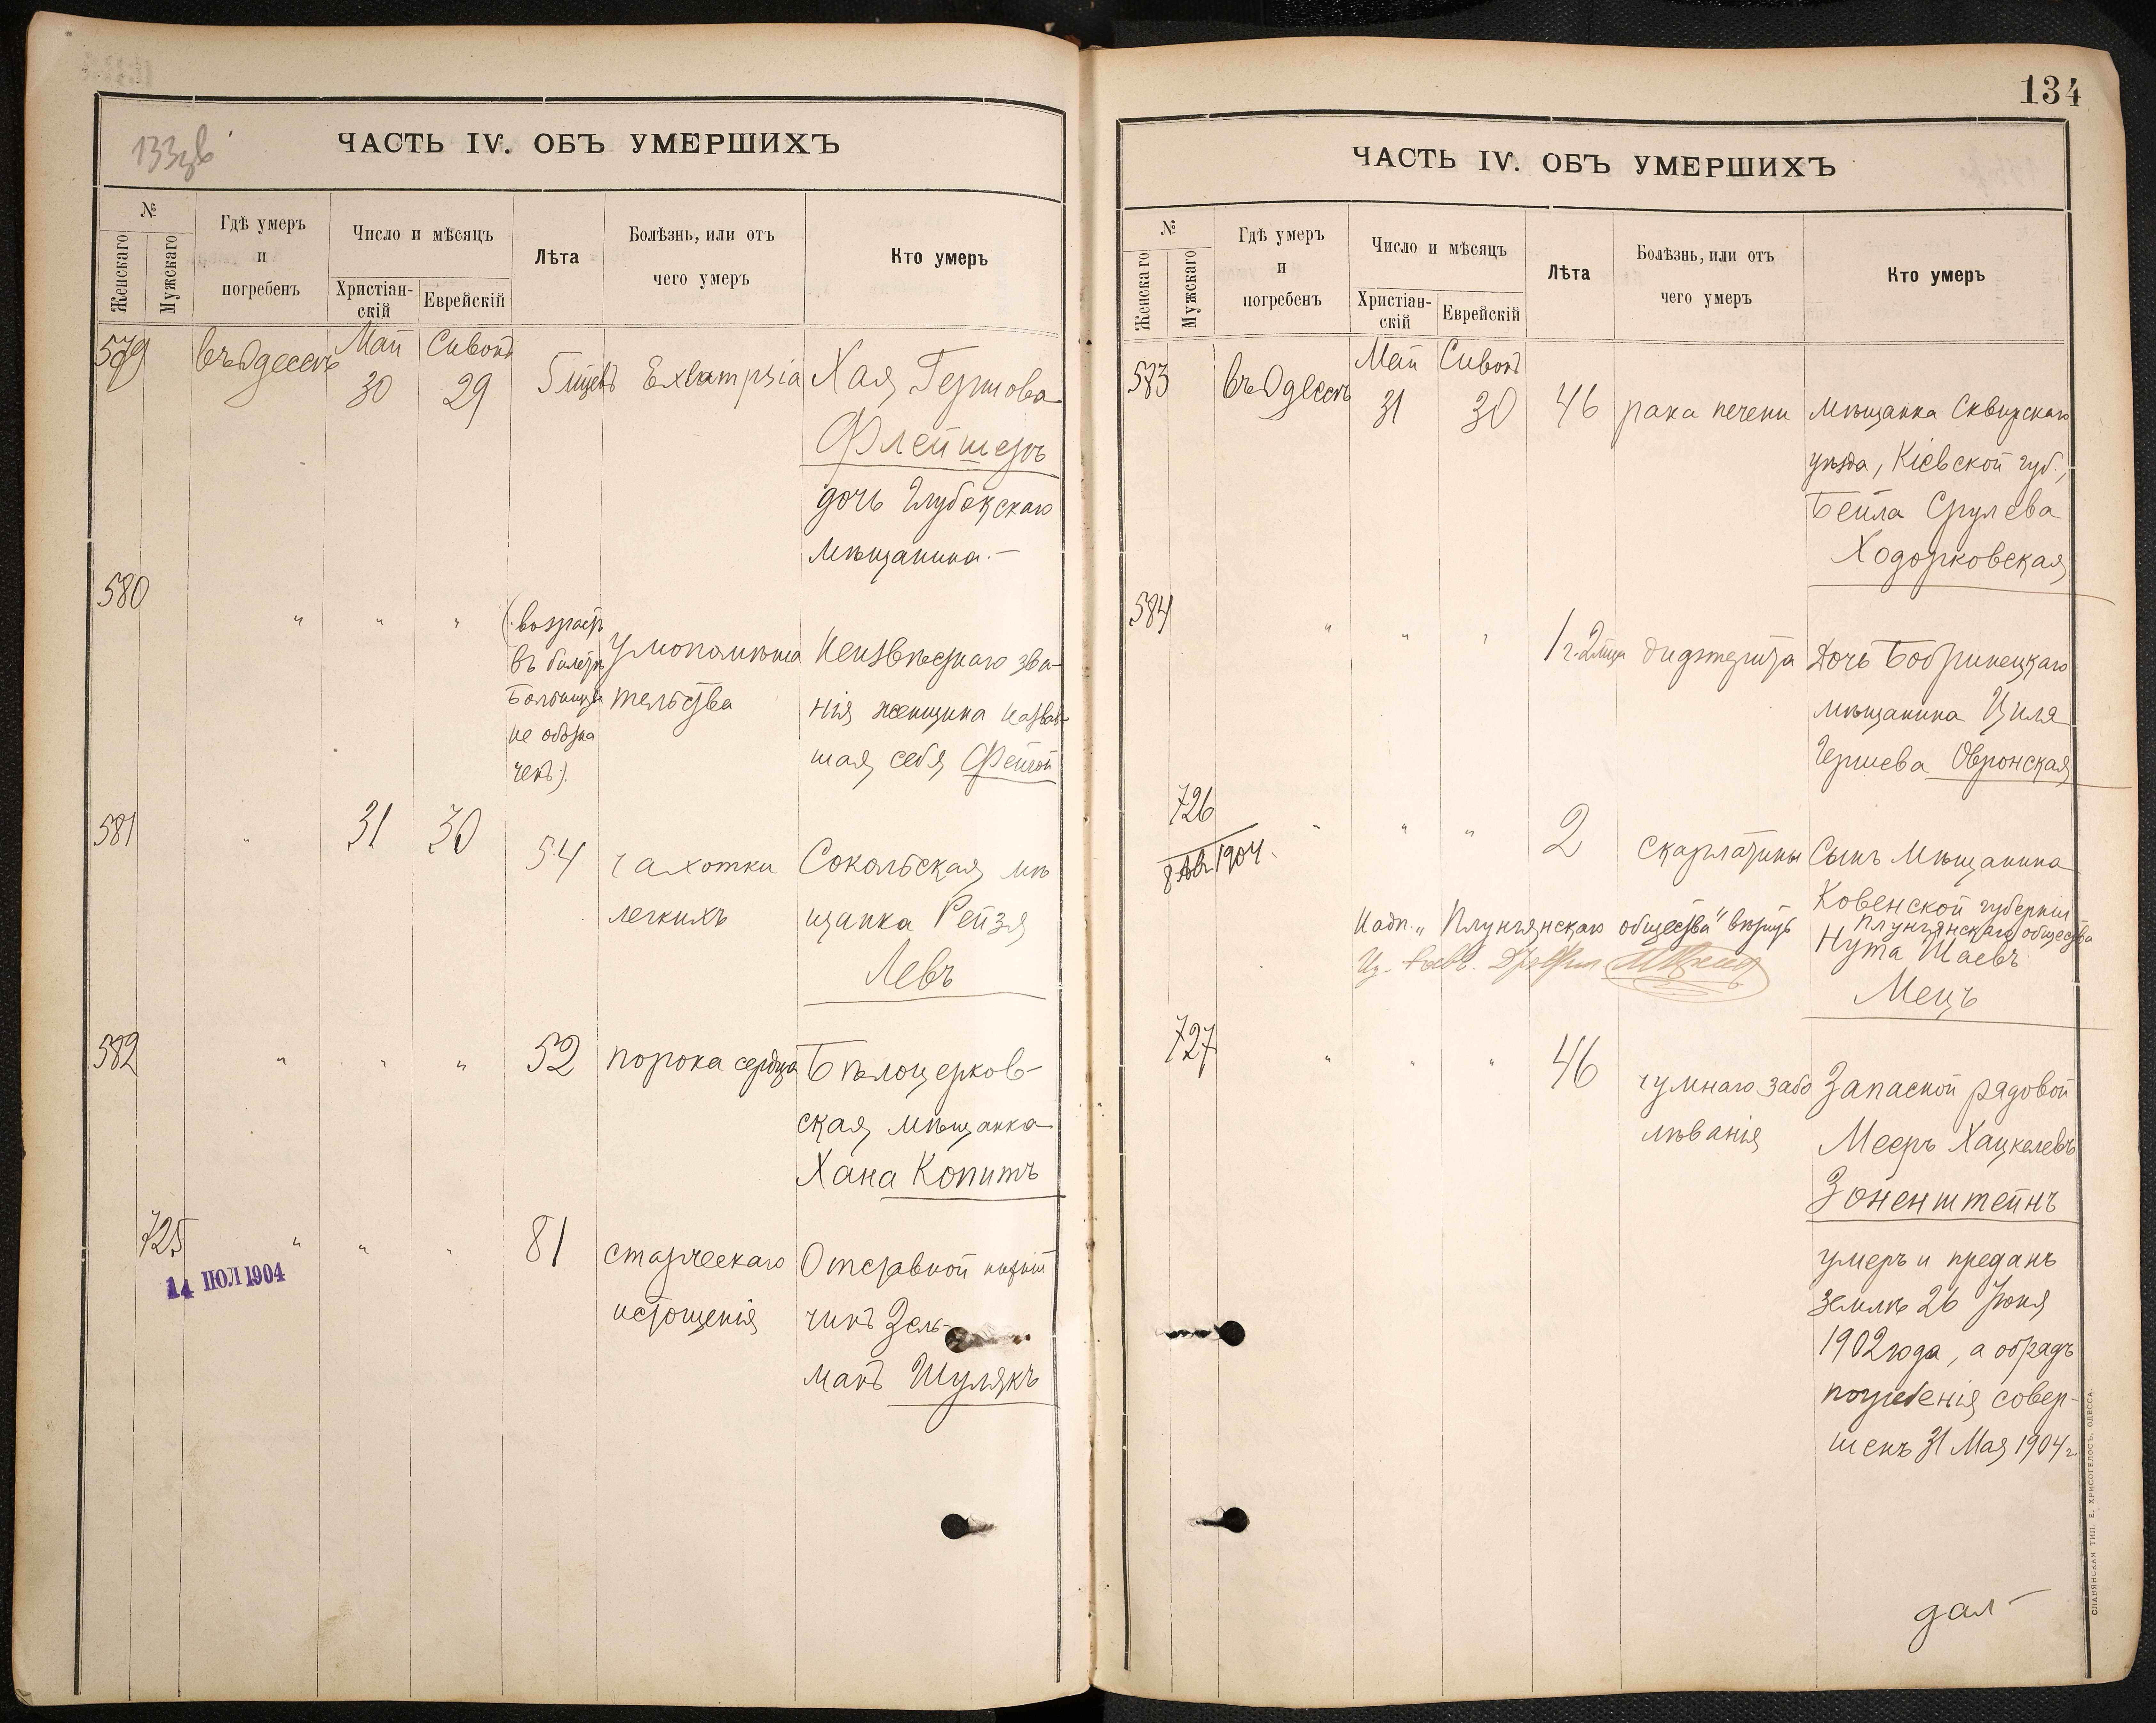 133
ЧАСТЬ IV. ОБЪ УМЕРШИХЪ
№
Женскаго
Мужскаго
Гдѣ умеръ
и
погребенъ
Число и мѣсяцъ
Христіан-
скій
Еврейскій
Лѣта
Болѣзнь, или отъ
чего умеръ
Кто умеръ
579
въ Одессѣ
Май
30
Сивонъ
29
5 мцевъ
Exlampsia
Хая Гершова
Флейшеръ
дочь Глубокскаго
мѣщанина.—
580
„
„
„
(возрастъ
въ билетѣ
больницы
не обозна
ченъ).
Умопомѣша
тельства
Неизвѣстнаго зва-
нія женщина назвав-
шая себя Фейгой
581
„
31
30
54
чахотки
легкихъ
Сокольская мѣ
щанка Рейзя
Левъ
582
„
„
„
52
порока сердца
Бѣлоцерков-
ская мѣщанка
Хана Копитъ
725
14 ІЮЛ 1904
„
„
„
81
старческаго
истощенія
Отставной нижній
чинъ Зель-
манъ Шулякъ
134
ЧАСТЬ IV. ОБЪ УМЕРШИХЪ
№
Женскаго
Мужскаго
Гдѣ умеръ
и
погребенъ
Число и мѣсяцъ
Христіан-
скій
Еврейскій
Лѣта
Болѣзнь, или отъ
чего умеръ
Кто умеръ
583
въ Одессѣ
Май
31
Сивонъ
30
46
рака печени
мѣщанка Сквирскаго
уѣзда, Кіевской губ.,
Бейла Срулева
Ходорковская
584
„
„
„
1 г. 2 мца
дифтерита
Дочь Бобринецкаго
мѣщанина Циля
Гершева Овронская
726
8 Авг 1904.
„
„
„
2
скарлатины
Сынъ мѣщанина
Ковенской губерніи
Плунгянскаго общества
Нута Шаевъ
Мецъ
Надп. „Плунгянскаго общества" вѣрить
727
„
„
„
46
чумнаго забо
лѣванія
Запасной рядовой
Мееръ Хацкелевъ
Зоненштейнъ
умеръ и преданъ
землѣ 26 Іюня
1902 года, а обрядъ
погребенія совер-
шенъ 31 Мая 1904 г.
дал
СЛАВЯНСКАЯ ТИП. Е. ХРИСОГЕЛОСЪ, ОДЕССА.